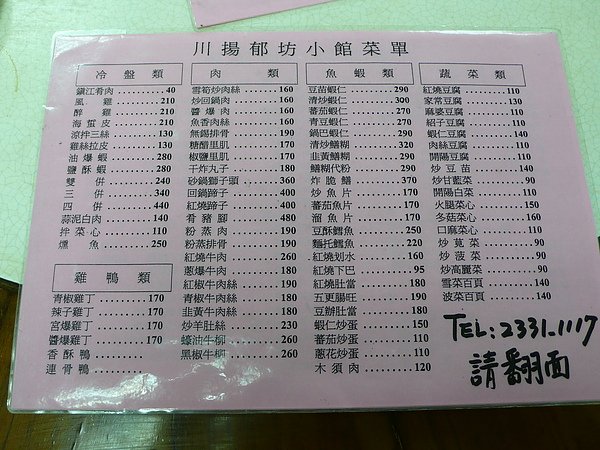 川揚郁坊小館菜單
冷盤類
鎮江肴肉 40
風雞 210
醉雞 210
海蜇皮 210
涼拌三絲 130
雞絲拉皮 130
油爆蝦 280
鹽酥蝦 280
雙併 240
三併 340
四併 440
蒜泥白肉 140
拌菜心 110
燻魚 250
雞鴨類
青椒雞丁 170
辣子雞丁 170
宮爆雞丁 170
醬爆雞丁 170
香酥鴨
連骨鴨
肉類
雪筍炒肉絲 160
炒回鍋肉 160
醬爆肉 160
魚香肉絲 160
無錫排骨 190
糖醋里肌 170
椒鹽里肌 170
干炸丸子 180
砂鍋獅子頭 360
回鍋蹄子 400
紅燒蹄子 400
肴豬腳 480
粉蒸肉 190
粉蒸排骨 190
紅燒牛肉 260
蔥爆牛肉 180
紅椒牛肉絲 180
青椒牛肉絲 180
韭黃牛肉絲 180
炒羊肚絲 230
蠔油牛柳 260
黑椒牛柳 260
魚蝦類
豆苗蝦仁 290
清炒蝦仁 300
蕃茄蝦仁 270
青豆蝦仁 270
鍋巴蝦仁 290
清炒鱔糊 320
韭黃鱔糊 290
鱔糊代粉 290
炸脆鱔 370
炒魚片 170
蕃茄魚片 170
溜魚片 170
豆酥鱈魚 250
麵托鱈魚 220
紅燒划水 160
紅燒下巴 95
紅燒肚當 180
五更腸旺 190
豆瓣肚當 180
蝦仁炒蛋 150
蕃茄炒蛋 110
蔥花炒蛋 110
木須肉 120
蔬菜類
紅燒豆腐 110
家常豆腐 130
麻婆豆腐 110
紹子豆腐 110
蝦仁豆腐 140
肉絲豆腐 110
開陽豆腐 110
炒豆苗 140
炒甘藍菜 110
開陽白菜 110
火腿菜心 150
多菇菜心 160
口麻菜心 110
炒莧菜 90
炒菠菜 90
炒高麗菜 90
雪菜百頁 140
波菜百頁 140
TEL:2331-1117
請翻面